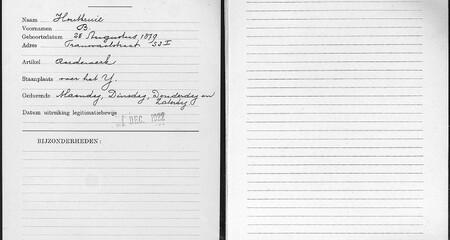 Naam Houtkuil
Voornamen B.
Geboortedatum 28 Augustus 1879
Adres Transvaalstraat 53 I
Artikel Aardewerk
Staanplaats over het Y.
Gedurende Maandag, Dinsdag, Donderdag en
Zaterdag
Datum uitreiking legitimatiebewijs 1 DEC. 1922
BIJZONDERHEDEN: